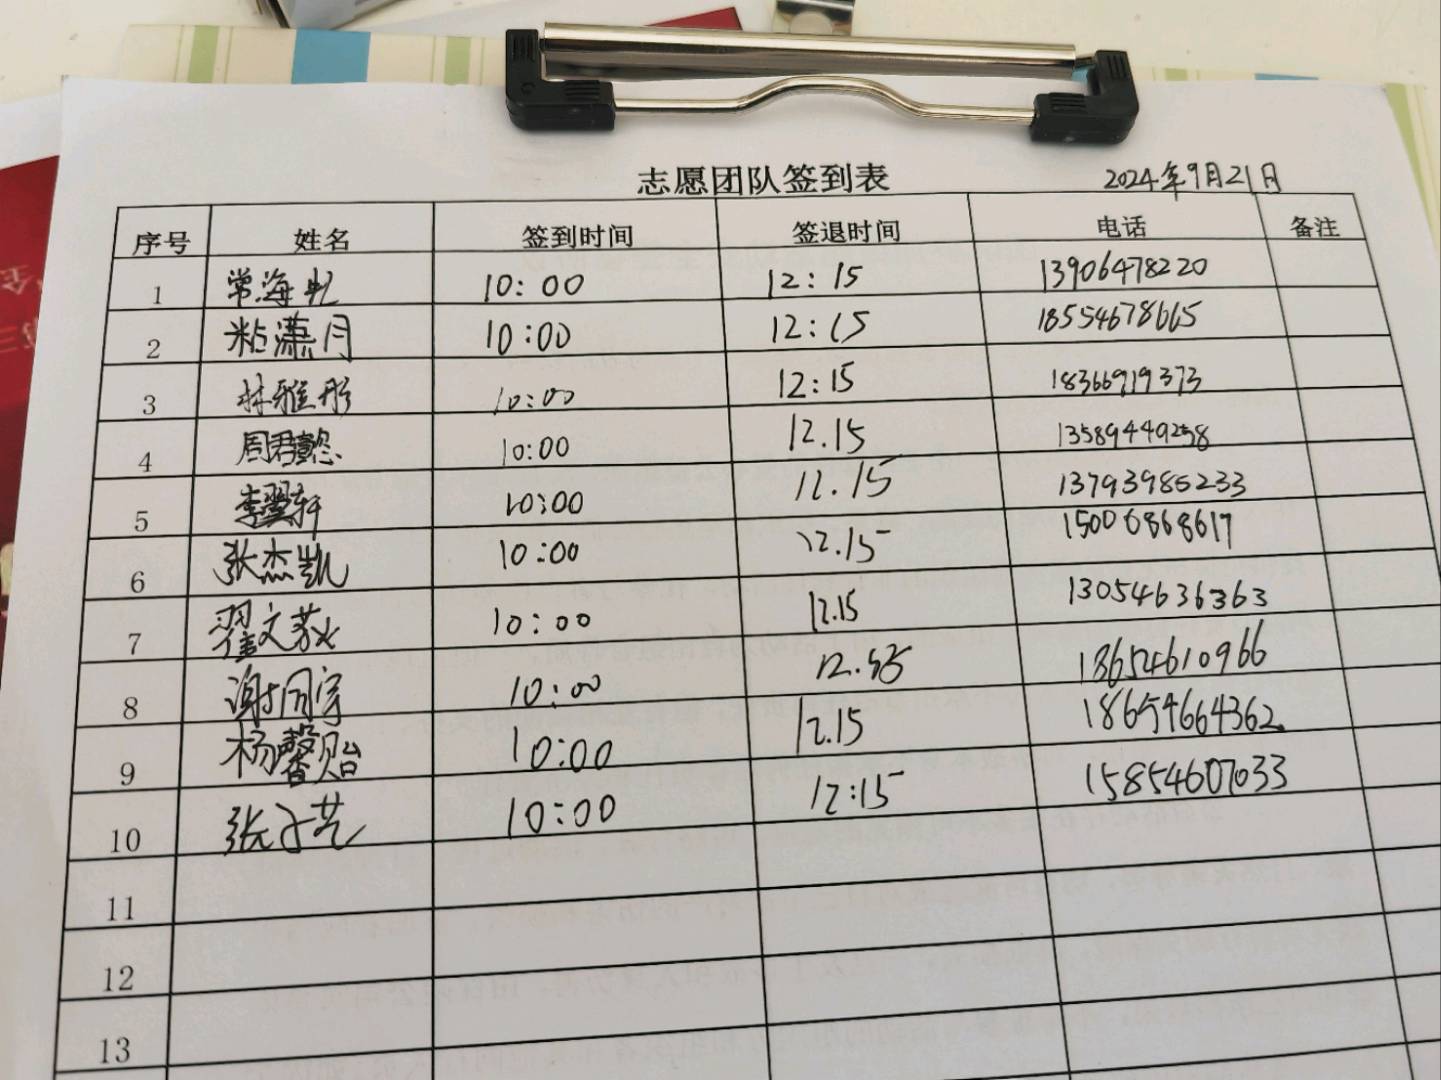 志愿团队签到表 2024年9月21日
序号 姓名 签到时间 签退时间 电话 备注
1 常海 10:00 12:15 13906478220
2 粘潇月 10:00 12:15 18554678665
3 林雅彤 10:00 12:15 18366919373
4 周君懿 10:00 12.15 13589449258
5 李翼轩 10:00 12.15 13793985233
6 张杰凯 10:00 12.15 15006868617
7 翟文荻 10:00 12.15 13054636363
8 谢同宇 10:00 18654610966
9 杨馨贻 10:00 12.15 18654664362
10 张子艺 10:00 12:15 15854607033
11
12
13